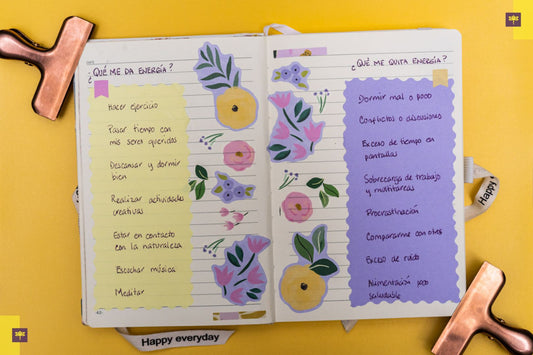 ¿QUÉ ME DA ENERGÍA?
Hacer ejercicio
Pasar tiempo con
mis seres queridos
Descansar y dormir
bien
Realizar actividades
creativas
Estar en contacto
con la naturaleza
Escuchar música
Meditar
¿QUÉ ME QUITA ENERGÍA?
Dormir mal o poco
Conflictos o discusiones
Exceso de tiempo en
pantallas
Sobrecarga de trabajo
y multitareas
Procrastinación
Compararme con otros
Exceso de ruido
Alimentación poco
saludable
Happy
Happy everyday